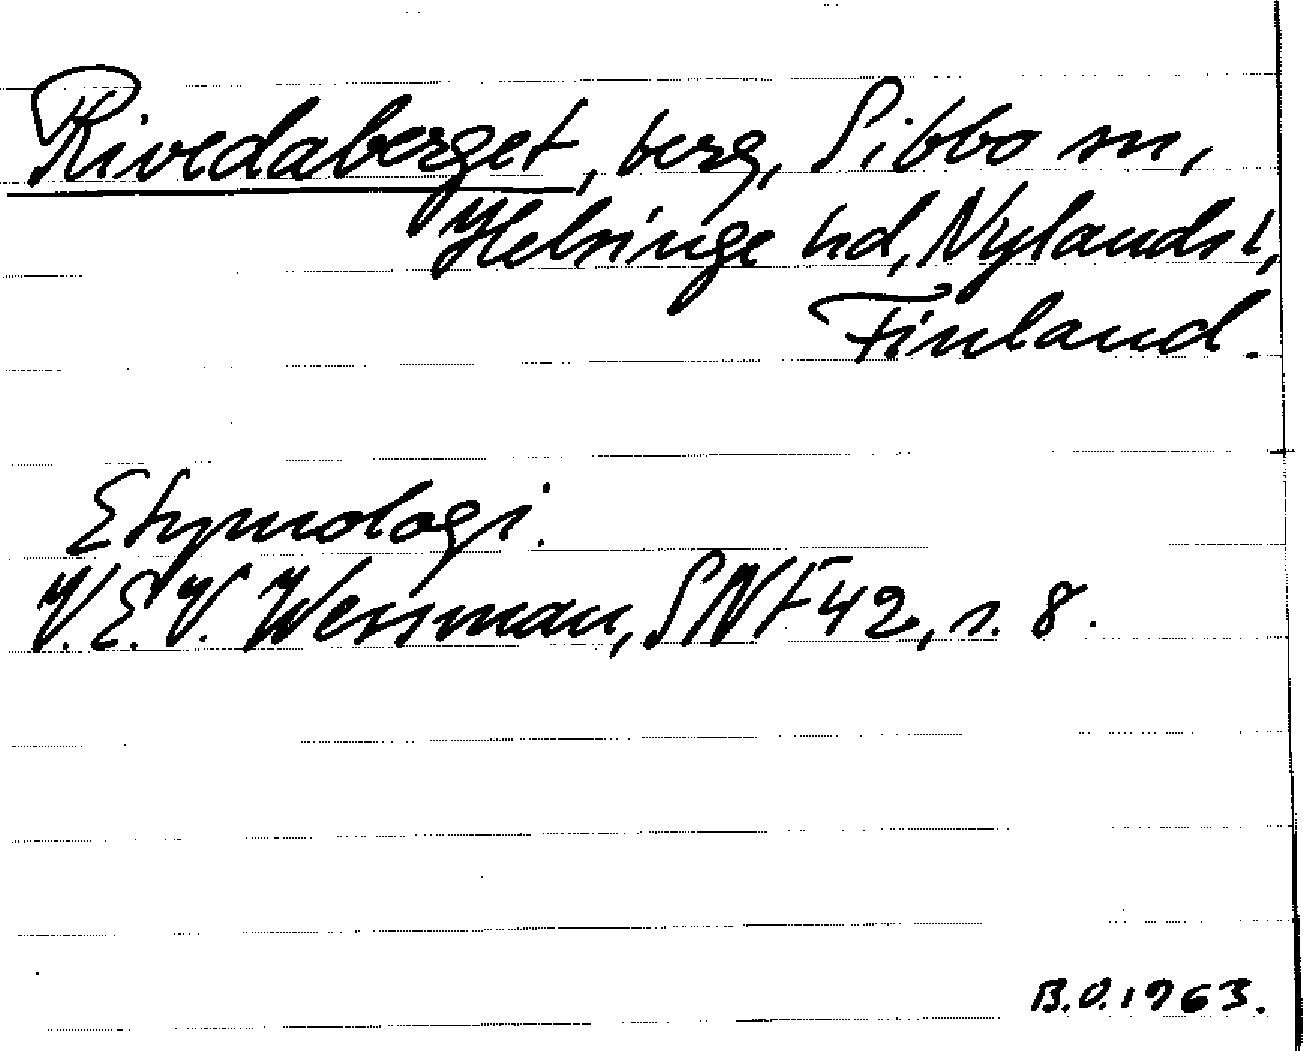 Rivedaberget, berg, Sibbo sn,
Helsinge hd, Nylands l,
Finland.
Etymologi.
V.E.V. Wessman, SNF 42, s. 8.
B.O. 1963.